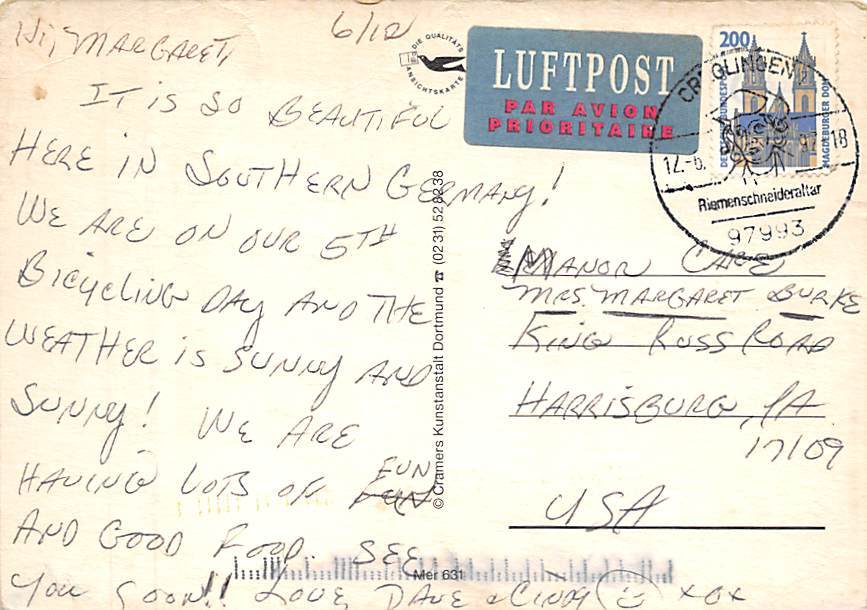 6/12
Hi, MARGARET,
IT is SO BEAUTIFUL
HERE IN SOUTHERN GERMANY!
WE ARE ON OUR 5TH
BICYCLING DAY AND THE
WEATHER is SUNNY AND
SUNNY! WE ARE
HAVING LOTS OF FUN
AND GOOD FOOD. SEE
YOU SOON!! LOVE, DAVE & CINDY XOX
DIE QUALITÄTS
ANSICHTSKARTE
© Cramers Kunstanstalt Dortmund ☎ (0231) 528238
Mer 631
LUFTPOST
PAR AVION
PRIORITAIRE
200
DEUTSCHE BUNDESPOST
MAGDEBURGER DOM
CREGLINGEN
12.-6. 97-18
Riemenschneideraltar
97993
MANOR CARE
MRS. MARGARET BURKE
KING RUSS ROAD
HARRISBURG, PA
17109
USA